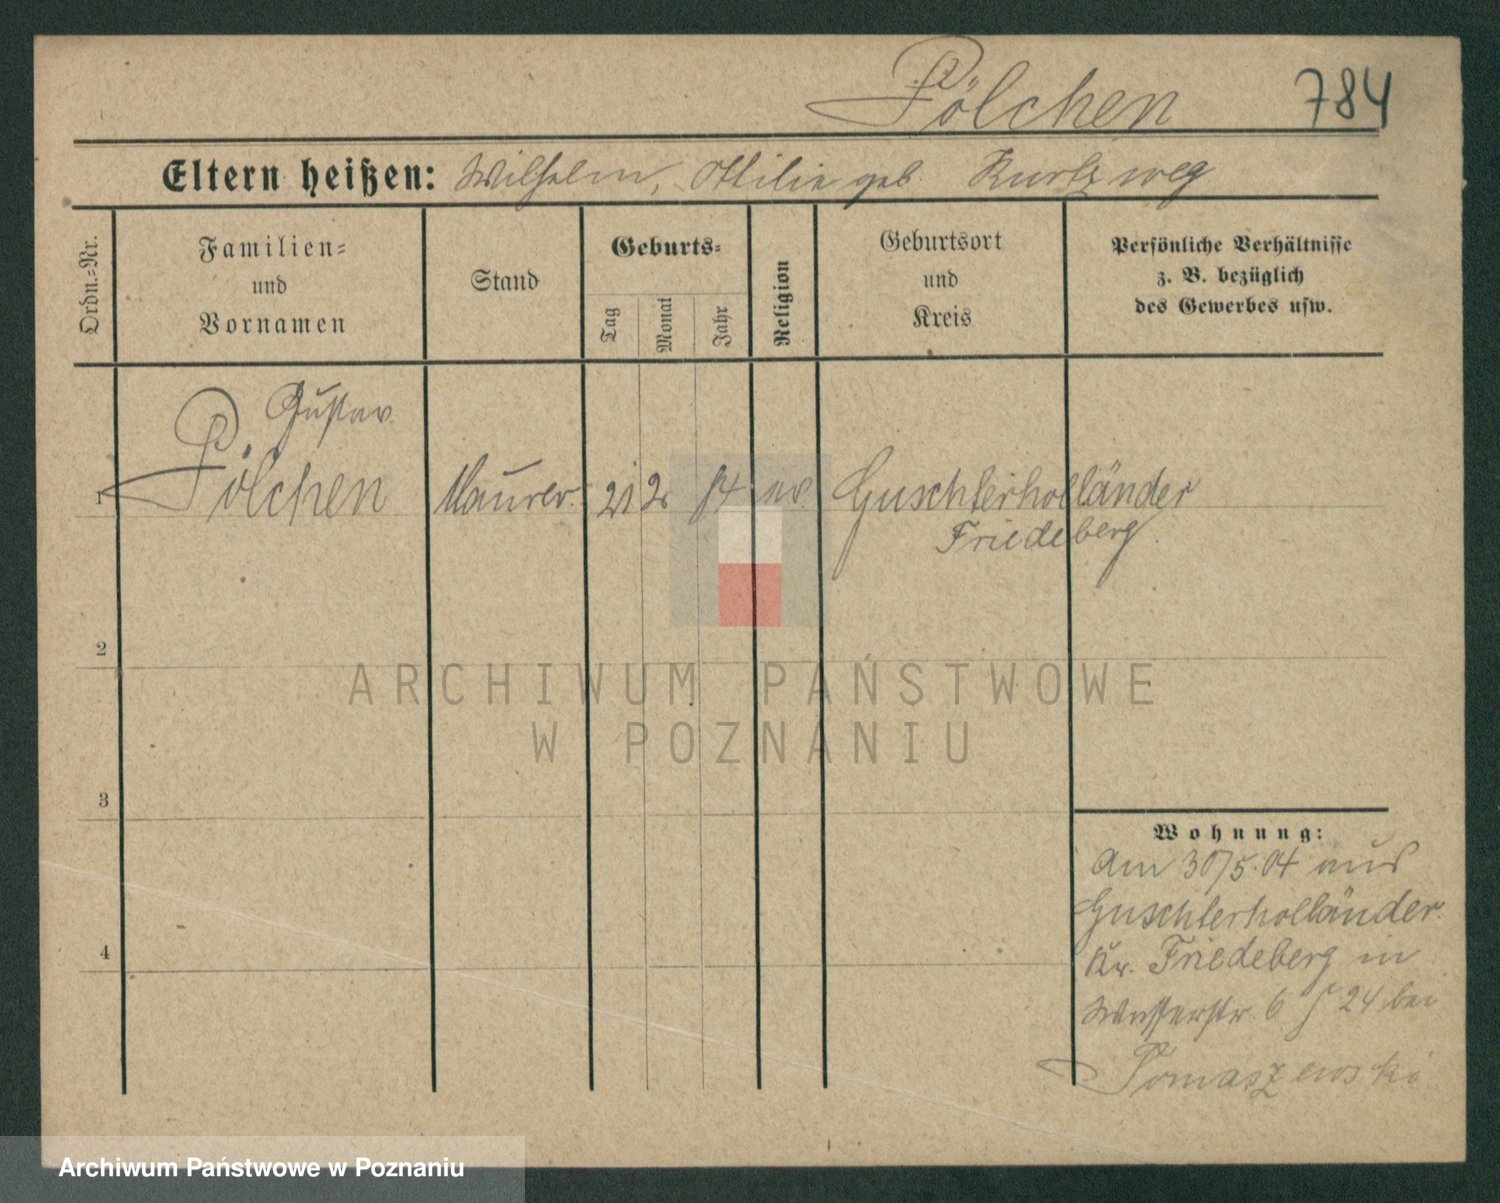 Pölchen 784
Eltern heißen: Wilhelm, Ottilie geb. Kurtzweg
Ordn.-Nr.
Familien-
und
Vornamen
Stand
Geburts-
Tag
Monat
Jahr
Religion
Geburtsort
und
Kreis
Persönliche Verhältnisse
z. B. bezüglich
des Gewerbes usw.
Gustav
1 Pölchen Maurer. 21 2 84 ev. Guschterholländer
Friedeberg.
2
3
4
Wohnung:
Am 30/5.04 aus
Guschterholländer.
Kr. Friedeberg in
Wasserstr. 6 24 bei
Tomaszewski
ARCHIWUM PAŃSTWOWE
W POZNANIU
Archiwum Państwowe w Poznaniu